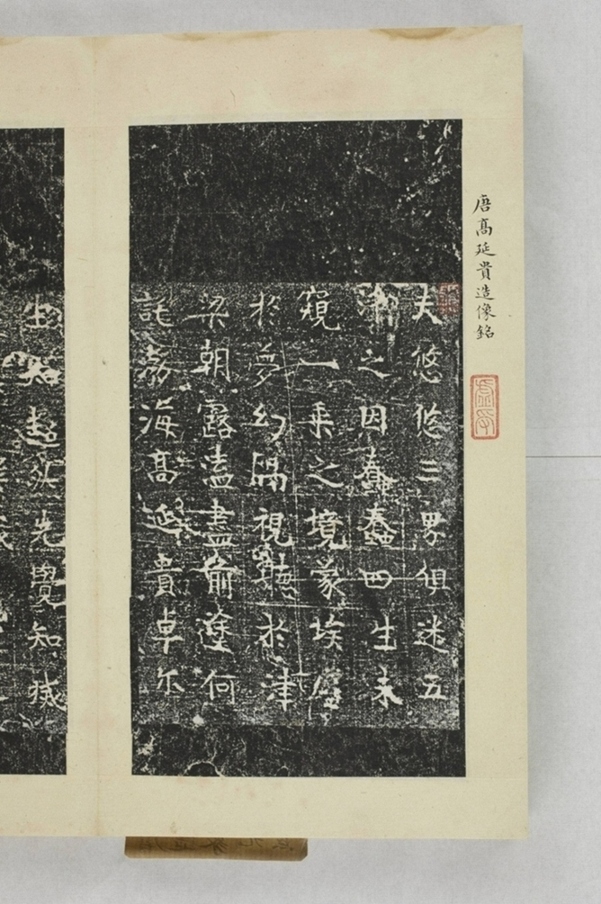 唐高延貴造像銘
夫悠悠三界俱迷五
淨之因蠢蠢四生未
窺一乘之境蒙埃塵
於夢幻隔視聽於津
梁朝露溘盡前塗何
託渤海高延貴卓尔
生知超然先覺知滅